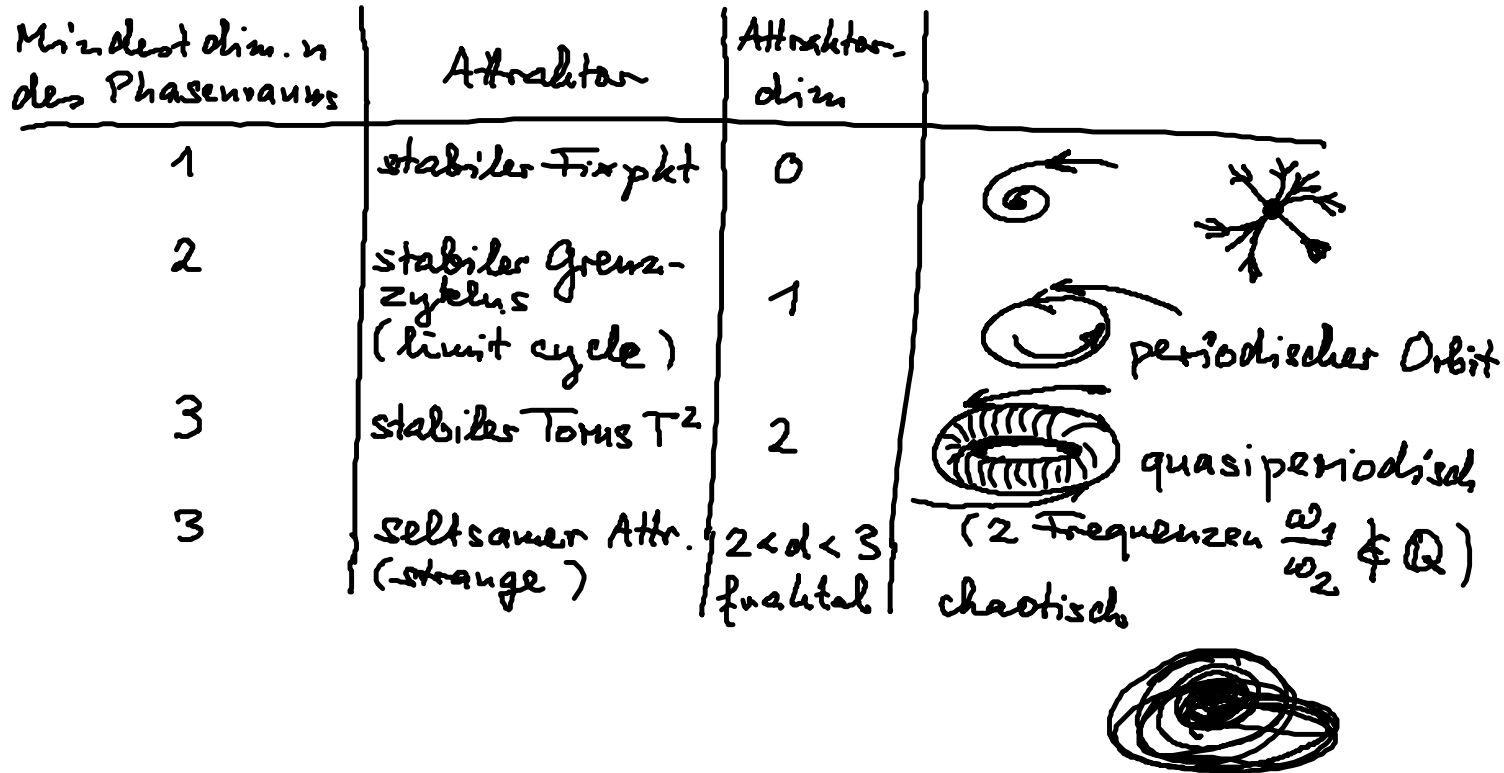 Mindestdim. n
des Phasenraums
Attraktor
Attraktor-
dim
1
stabiler Fixpkt
0
2
stabiler Grenz-
zyklus
(limit cycle)
1
periodischer Orbit
3
stabiler Torus T²
2
quasiperiodisch
(2 Frequenzen ω₁/ω₂ ∉ Q)
3
seltsamer Attr.
(strange)
2 < d < 3
fraktal
chaotisch